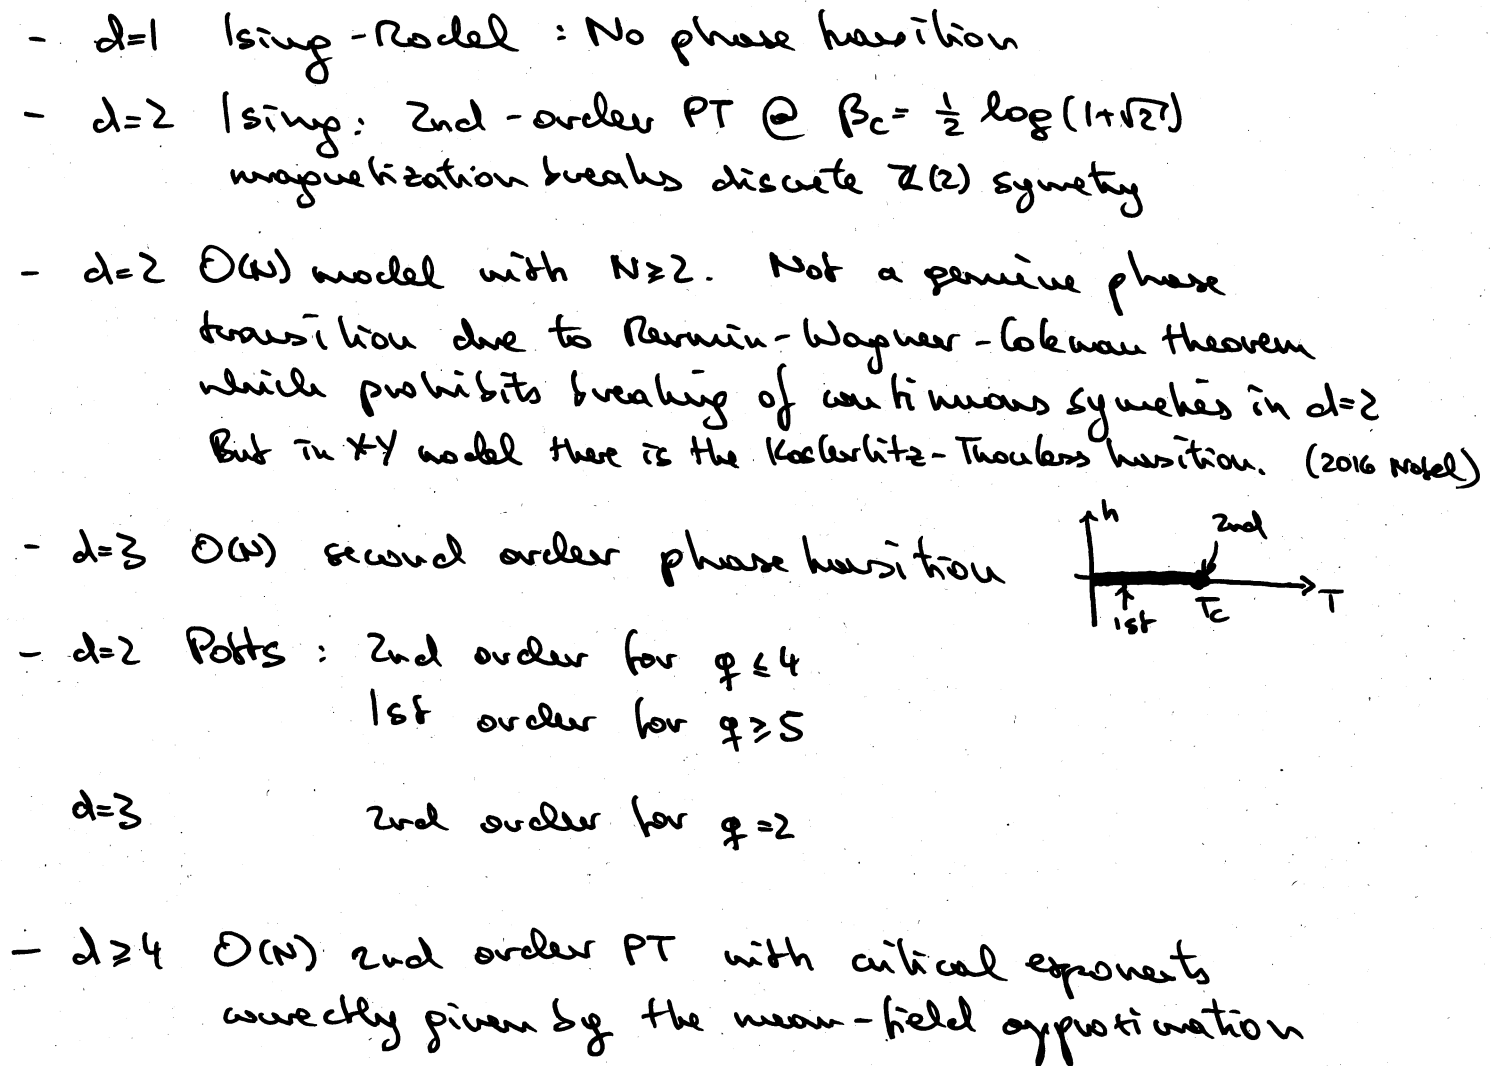 - d=1 Ising-Model : No phase transition
- d=2 Ising: 2nd-order PT @ βc = 1/2 log(1+√2)
magnetization breaks discrete ℤ(2) symetry
- d=2 O(N) model with N≥2. Not a genuine phase
transition due to Mermin-Wagner-Coleman theorem
which prohibits breaking of continuous symetries in d=2
But in XY model there is the Kosterlitz-Thouless transition. (2016 Nobel)
- d=3 O(N) second order phase transition
h
2nd
T
1st
Tc
- d=2 Potts : 2nd order for q≤4
1st order for q≥5
d=3 2nd order for q=2
- d≥4 O(N) 2nd order PT with critical exponents
correctly given by the mean-field approximation